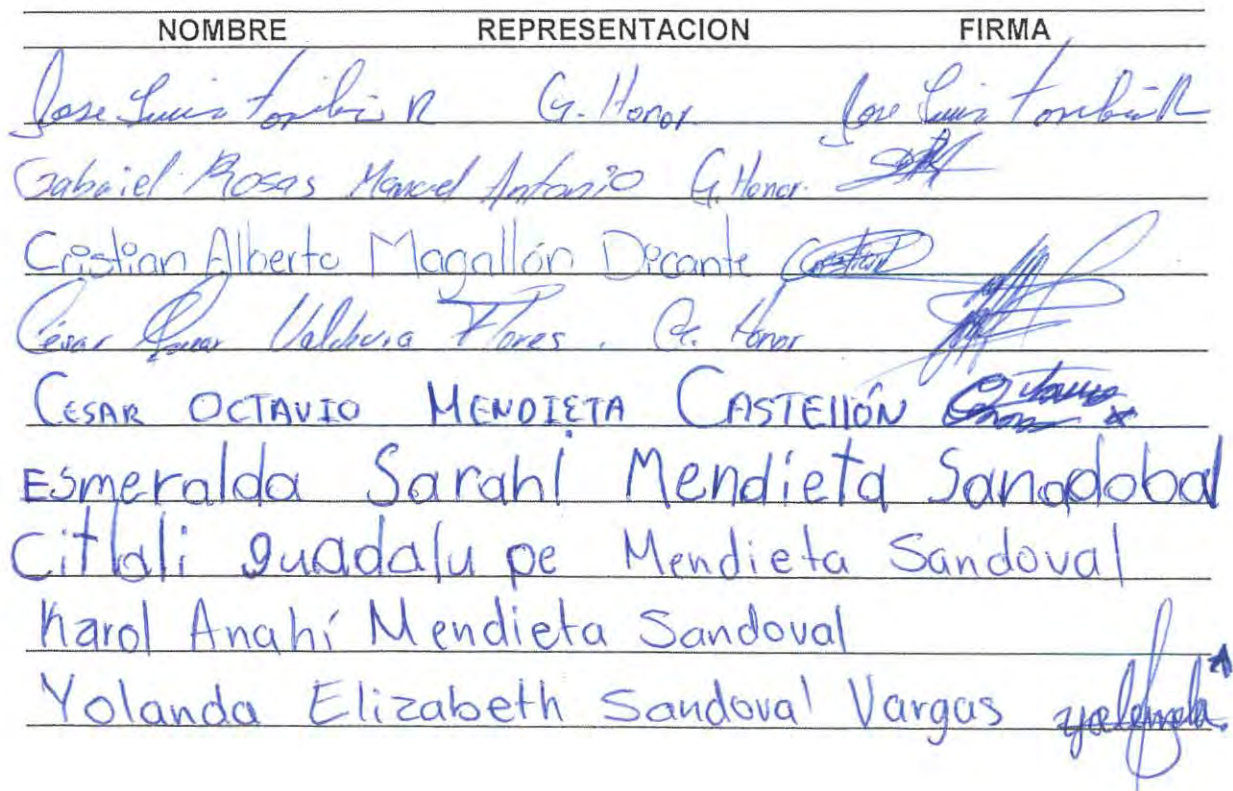 NOMBRE REPRESENTACION FIRMA
Jose Luis Toribio R G. Honor. Jose Luis Toribio R
Gabriel Rosas Manuel Antonio G. Honor.
Cristian Alberto Magallón Dicante Cristian
César Omar Valdivia Flores. G. Honor
CESAR OCTAVIO MENDIETA CASTEllÓN Octavio
Esmeralda Sarahí Mendieta Sanadobal
Citlali guadalu pe Mendieta Sandoval
Karol Anahí Mendieta Sandoval
Yolanda Elizabeth Sandoval Vargas